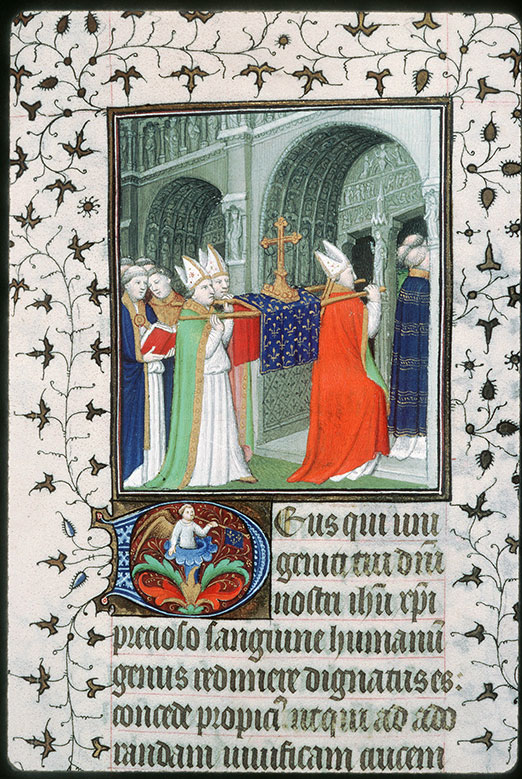 Deus qui uni
geniti tui dn̄i
nostri ihū xp̄i
precioso sanguine humanū
genus redimere dignatus es:
concede propici⁹ ut qui ad ado
randam uiuificam crucem